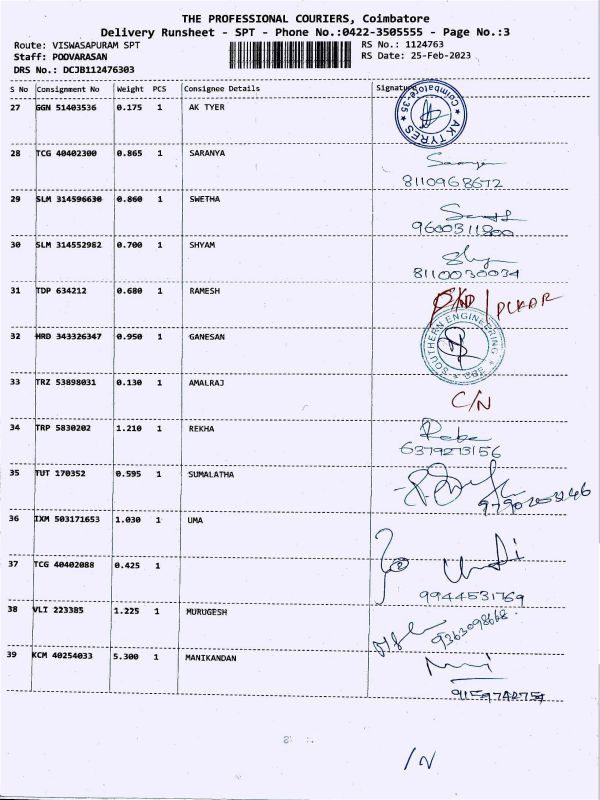 THE PROFESSIONAL COURIERS, Coimbatore
Delivery Runsheet - SPT - Phone No.:0422-3505555 - Page No.:3
Route: VISWASAPURAM SPT RS No.: 1124763
Staff: POOVARASAN RS Date: 25-Feb-2023
DRS No.: DCJB112476303
S No Consignment No Weight PCS Consignee Details Signature
27 GGN 51403536 0.175 1 AK TYER
Coimbatore-35 ★ AK TYRES ★
28 TCG 40402300 0.865 1 SARANYA
8110968672
29 SLM 314596630 0.860 1 SWETHA
9600311800
30 SLM 314552982 0.700 1 SHYAM
8110030034
31 TDP 634212 0.680 1 RAMESH
32 HRD 343326347 0.950 1 GANESAN
SOUTHERN ENGINEERING
33 TRZ 53898031 0.130 1 AMALRAJ
C/N
34 TRP 5830202 1.210 1 REKHA
6379273156
35 TUT 170352 0.595 1 SUMALATHA
9790203246
36 IXM 503171653 1.030 1 UMA
37 TCG 40402088 0.425 1
9944531769
38 VLI 223385 1.225 1 MURUGESH
9363098668
39 KCM 40254033 5.300 1 MANIKANDAN
9159742751
/N